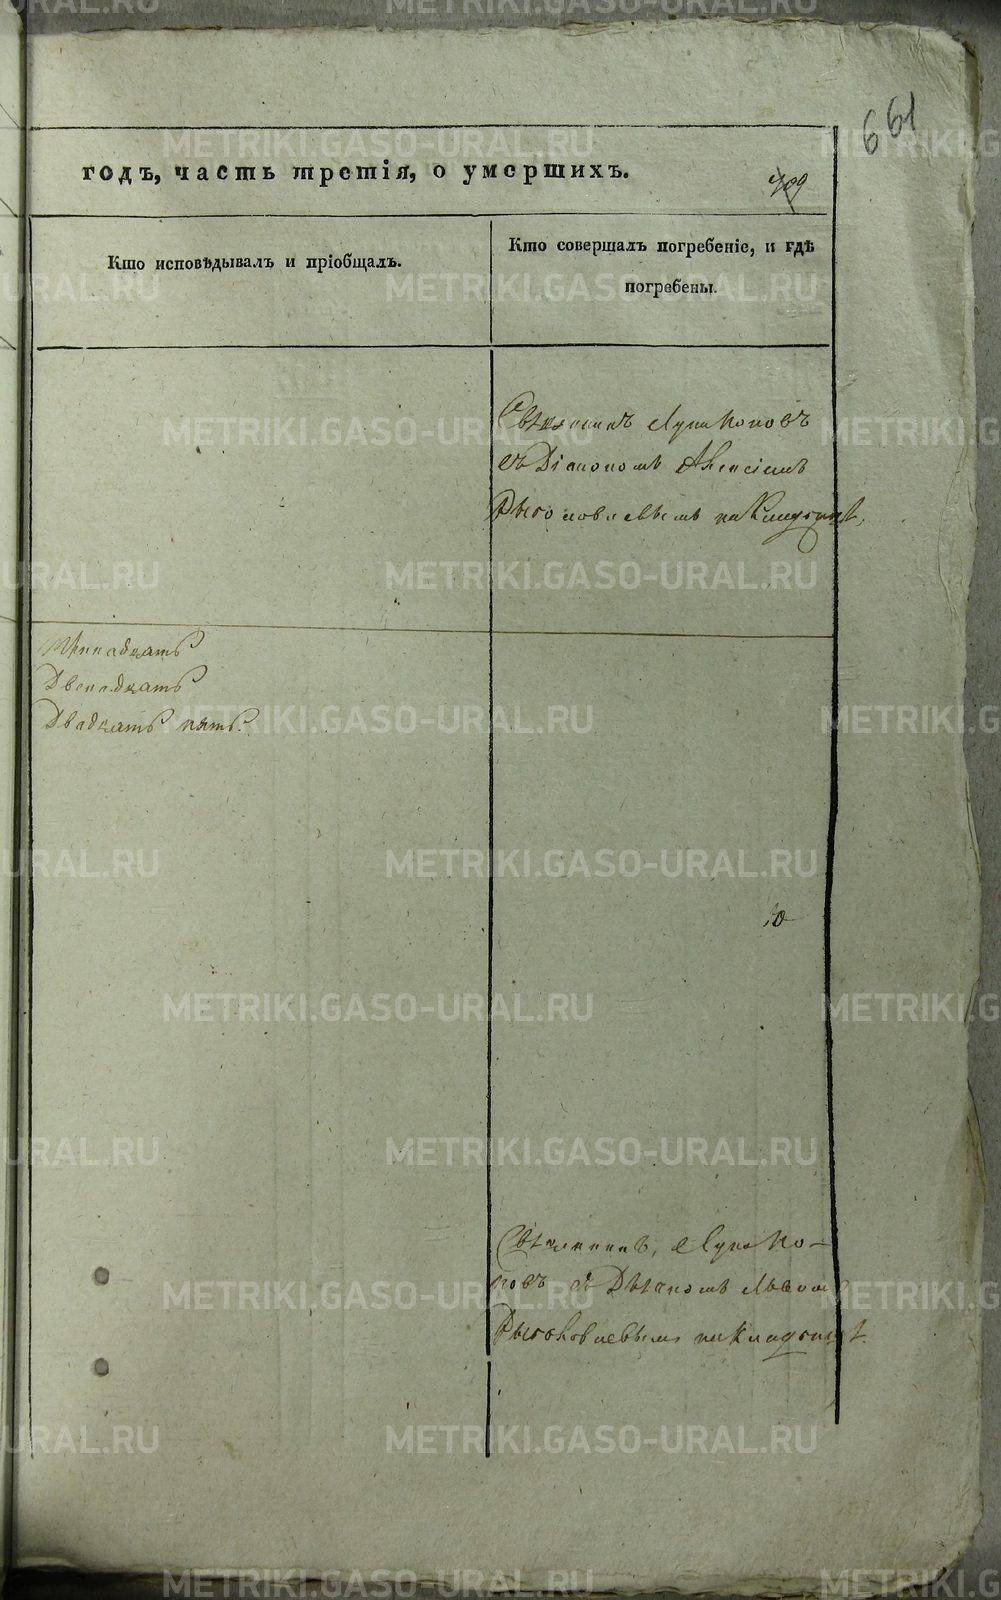 661
годъ, часть третія, о умершихъ.
409
Кто исповѣдывалъ и пріобщалъ.
Кто совершалъ погребеніе, и гдѣ
погребены.
Священникъ Лупа Поповъ
съ Діакономъ Алексіемъ
на Кладбищѣ,
Тринадцать
Двенадцать
Двадцать пять.
Священникъ, Лупа По-
повъ съ Діакономъ
на Кладбищѣ.
METRIKI.GASO-URAL.RU